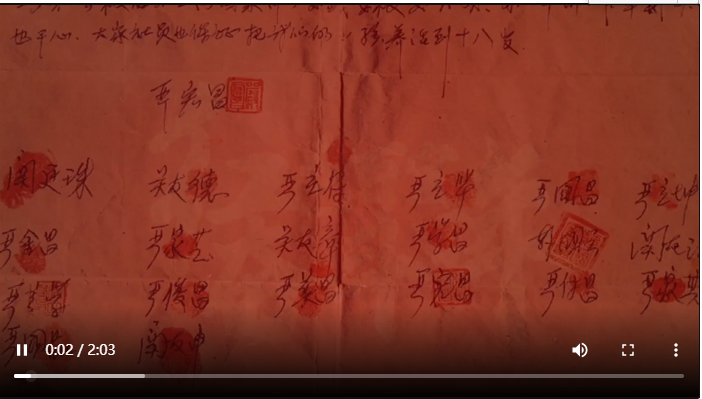 也干心,大家社员也保证把我们的小孩养活到十八岁
严宏昌
关廷珠 关友德 严立符 严立华 严国昌 严立坤
严金昌 严家芝 关友章 严学昌 韩国云 关友江
严立学 严俊昌 严美昌 严宏昌 严付昌 严家其
严国 关友申
0:02 / 2:03